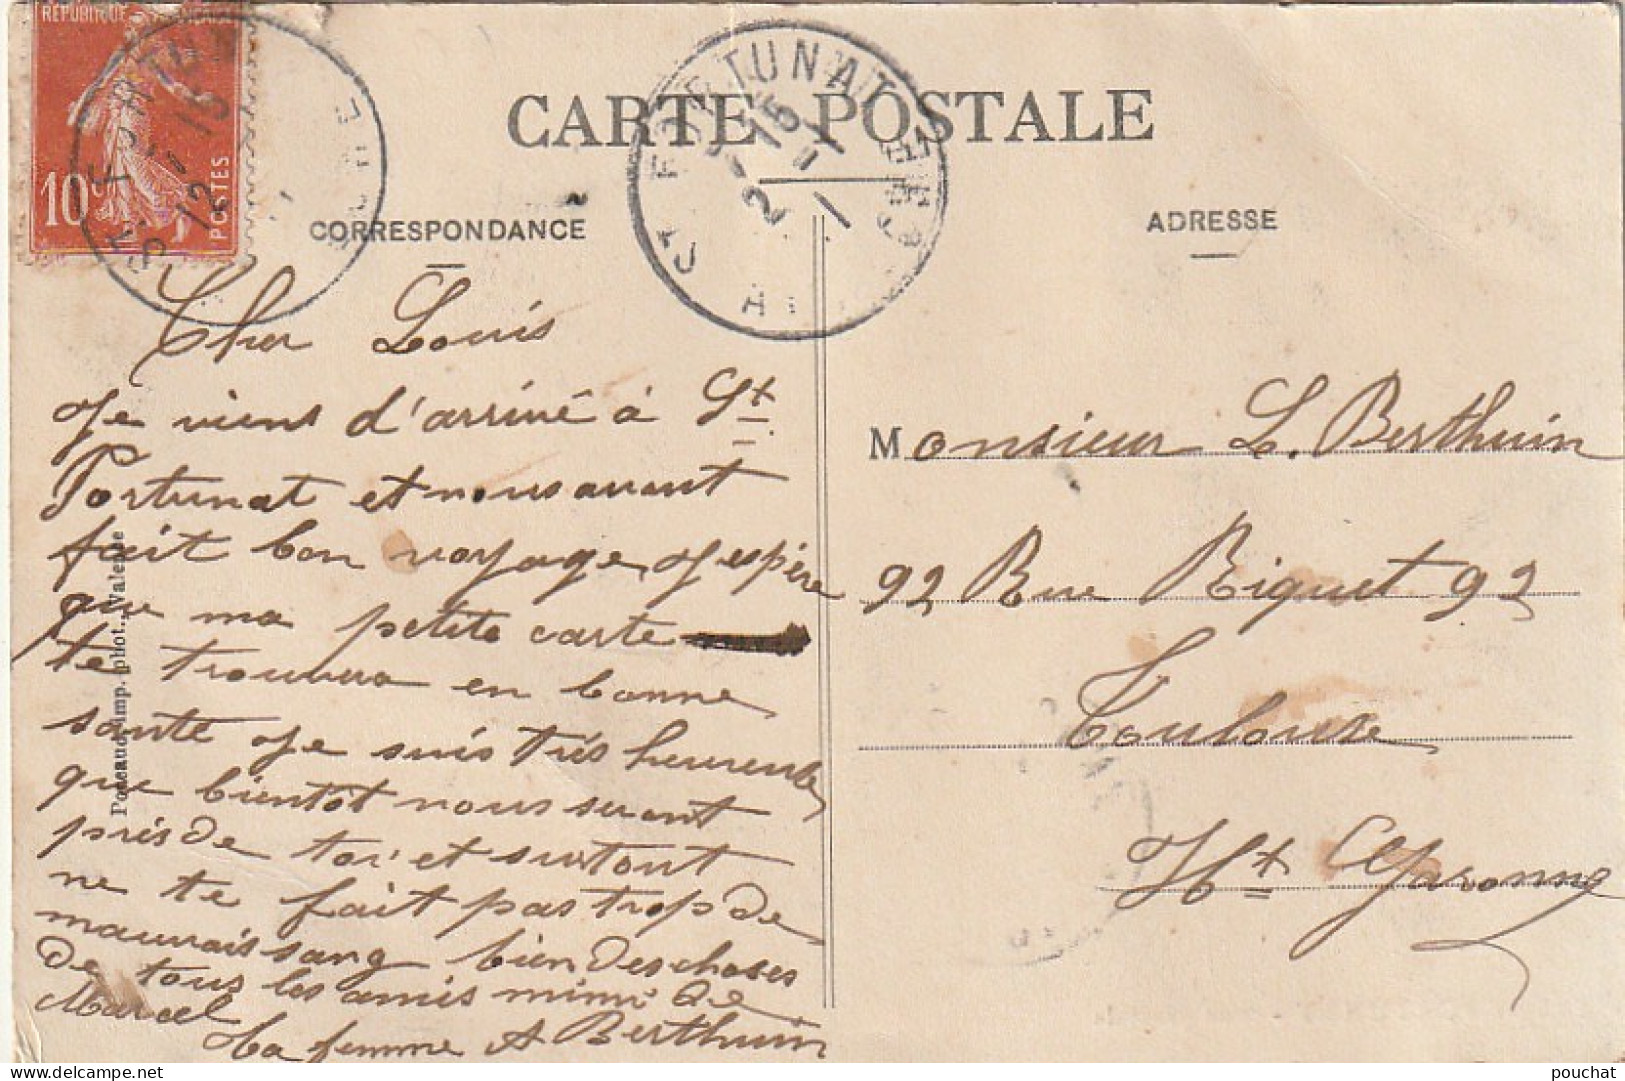 RÉPUBLIQUE FRANÇAISE
10c
POSTES
ST FORTUNAT
12 - 15
CARTE POSTALE
ST FORTUNAT
ARDECHE
15 - 1
2 - 11
CORRESPONDANCE
ADRESSE
Cher Louis
Je viens d'arrivé à St
Fortunat et nous avont
fait bon voyage J'espère
que ma petite carte
te trouvera en bonne
santé Je suis très heureuse
que bientôt nous seront
près de toi et surtout
ne te fait pas trop de
mauvais sang bien des choses
de tous les amis mimi de
Marcel
Ta femme A Berthuin
Monsieur L. Berthuin
92 Rue Riquet 92
Toulouse
Ht Garonne
Pouzaud, imp. phot., Valence
pouchat